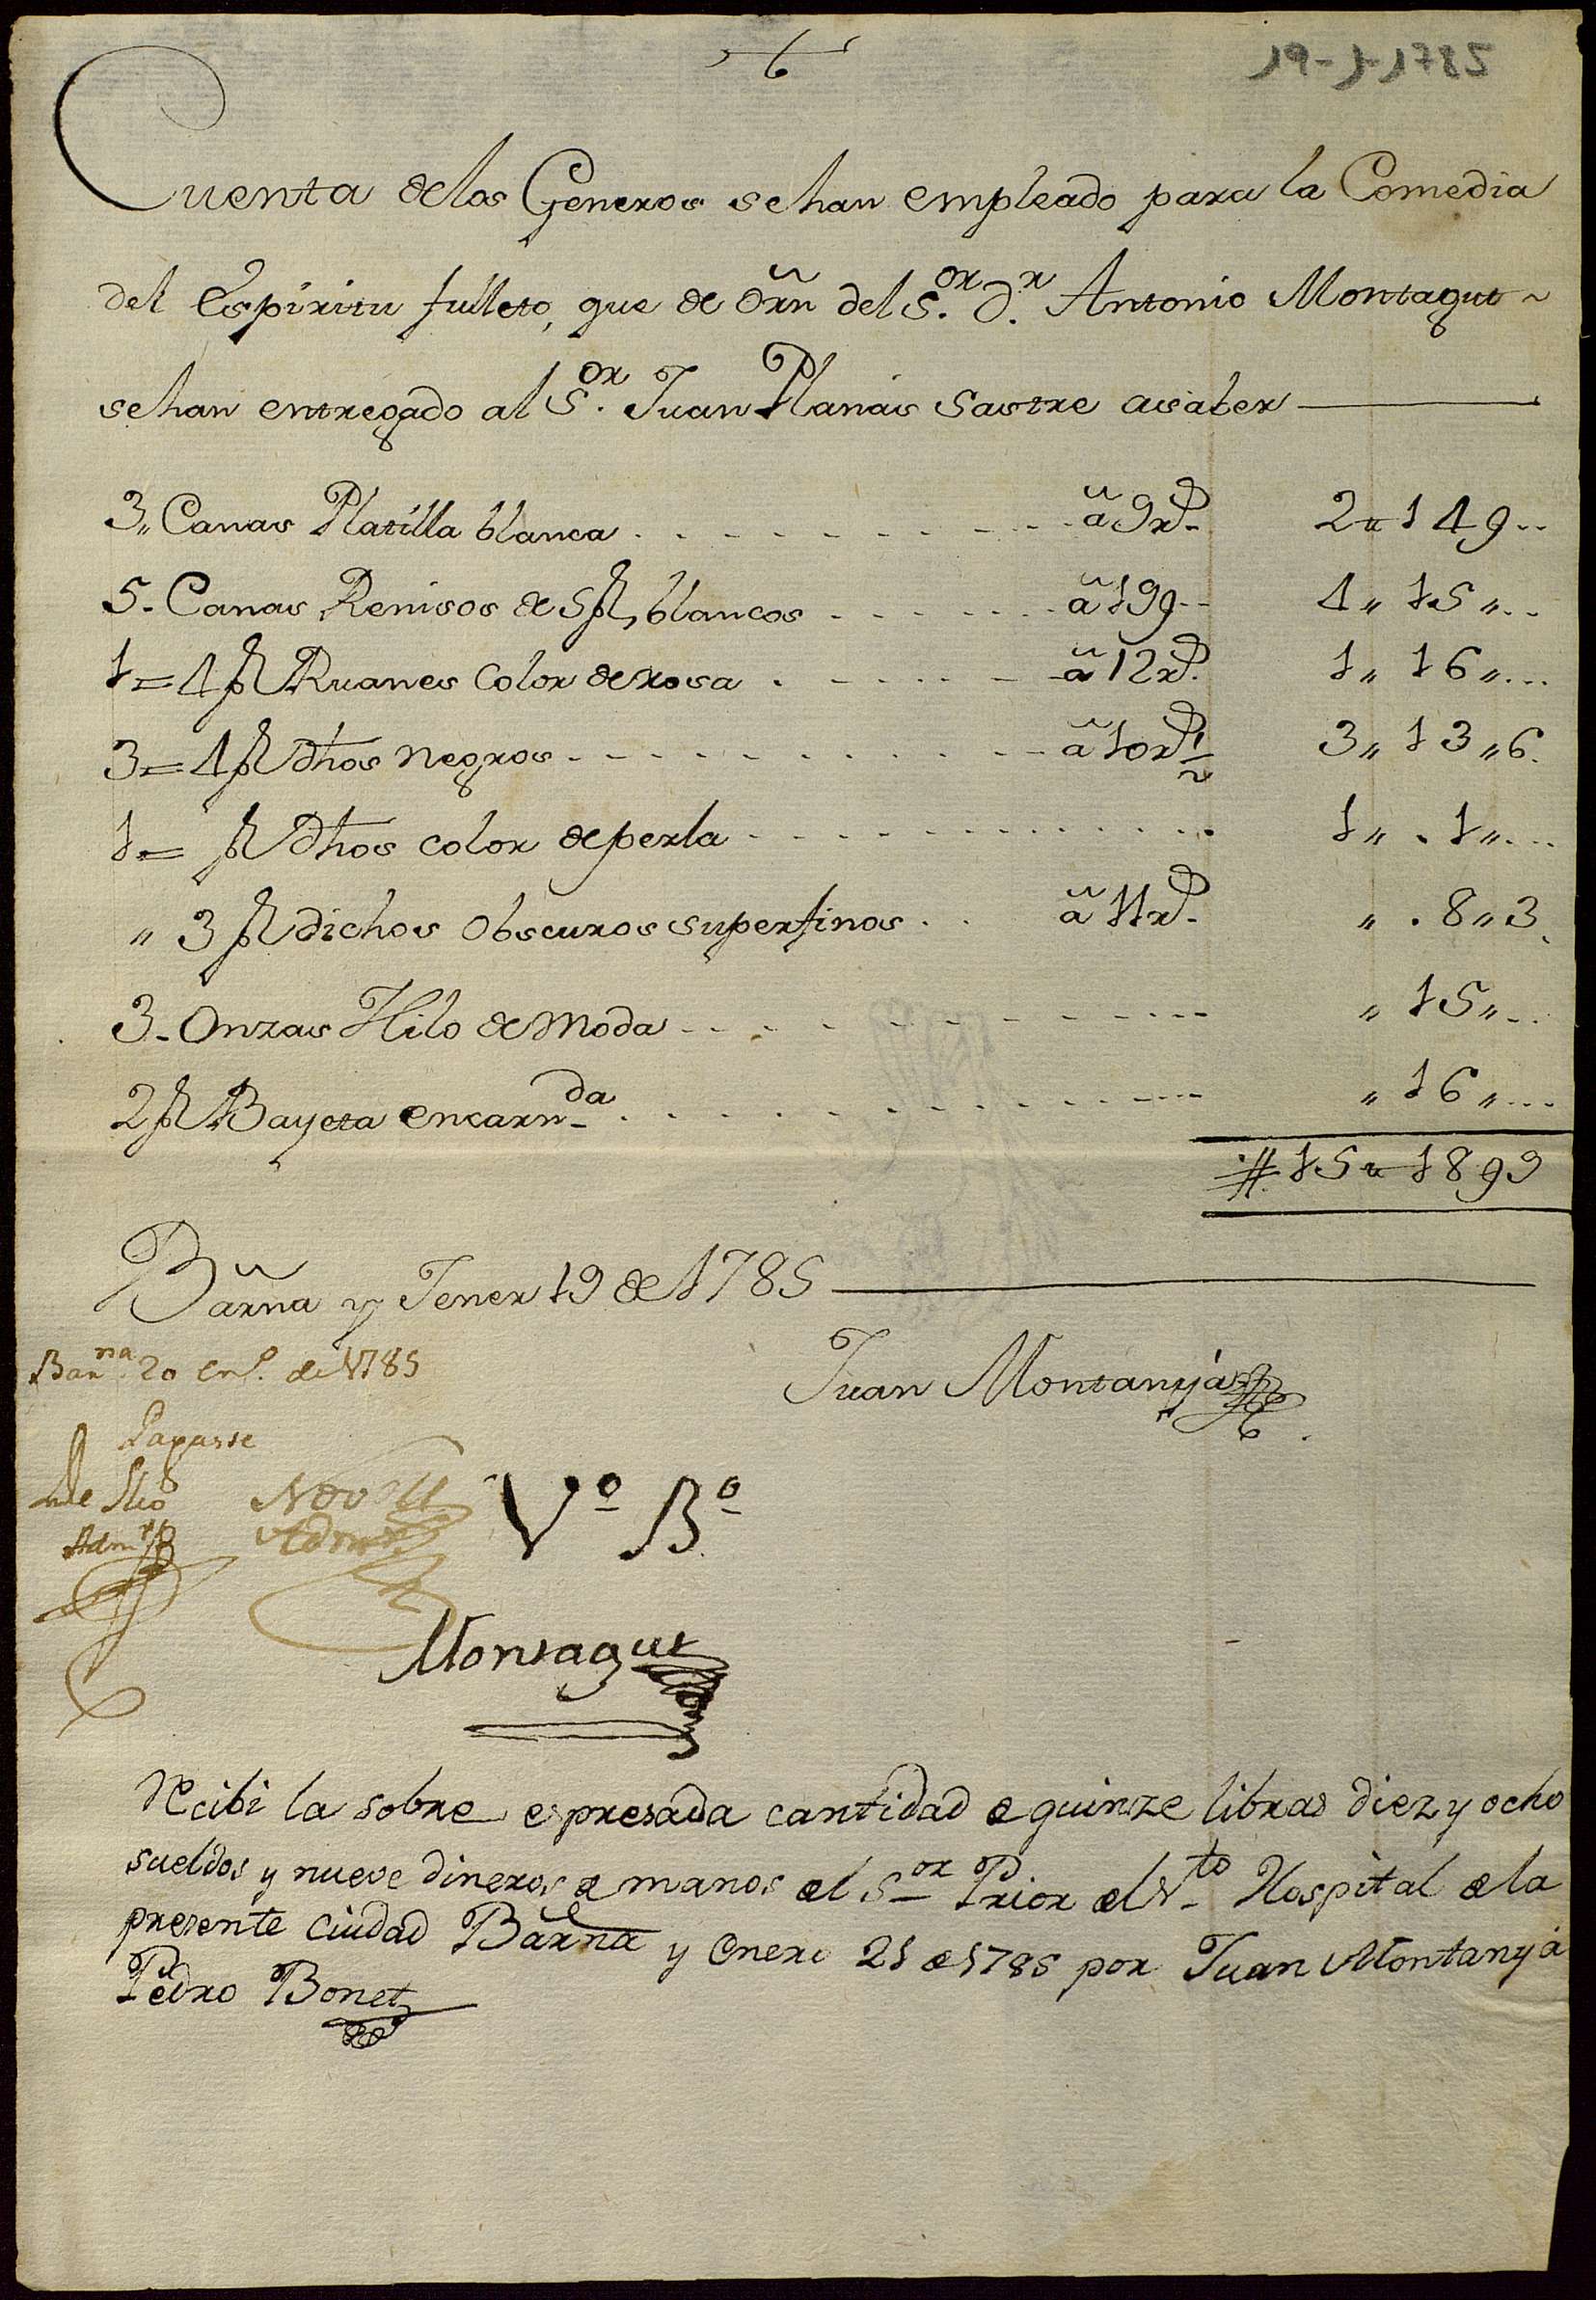 19-1-1785
Cuenta de los Generos se han empleado para la Comedia
del Espiritu fulleto, que de Orñ del S.or D.n Antonio Montagut
se han entregado al S.or Juan Planas Sastre asaber
3,, Canas Platilla blanca a 9 rd. 2 ,, 14 9
5 - Canas Renisos de 5 p blancos a 19 9 4 ,, 15 ,,
1 = 4 p Ruanes Color de rosa a 12 rd. 1 ,, 16 ,,
3 = 4 p dhos negros a 10 rd 1/2 3 ,, 13 ,, 6
1 = p dhos color de perla 1 ,, . 1 ,,
,, 3 p dichos obscuros superfinos a 11 rd. ,, . 8 ,, 3
3 - Onzas Hilo de moda ,, 15 ,,
2 p Bayeta encarn.da ,, 16 ,,
# 15 ,, 18 9 9
Barña y Jener 19 de 1785
Bar.na 20 En.o de 1785
Juan Montanyá
V.o B.o
Adm.or
Montagut
Recibi la sobre espresada cantidad de quinze libras diez y ocho
sueldos y nueve dineros de manos del S.or Prior del S.to Hospital de la
presente Ciudad Barña y Enero 21 de 1785 por Juan Montanyá
Pedro Bonet